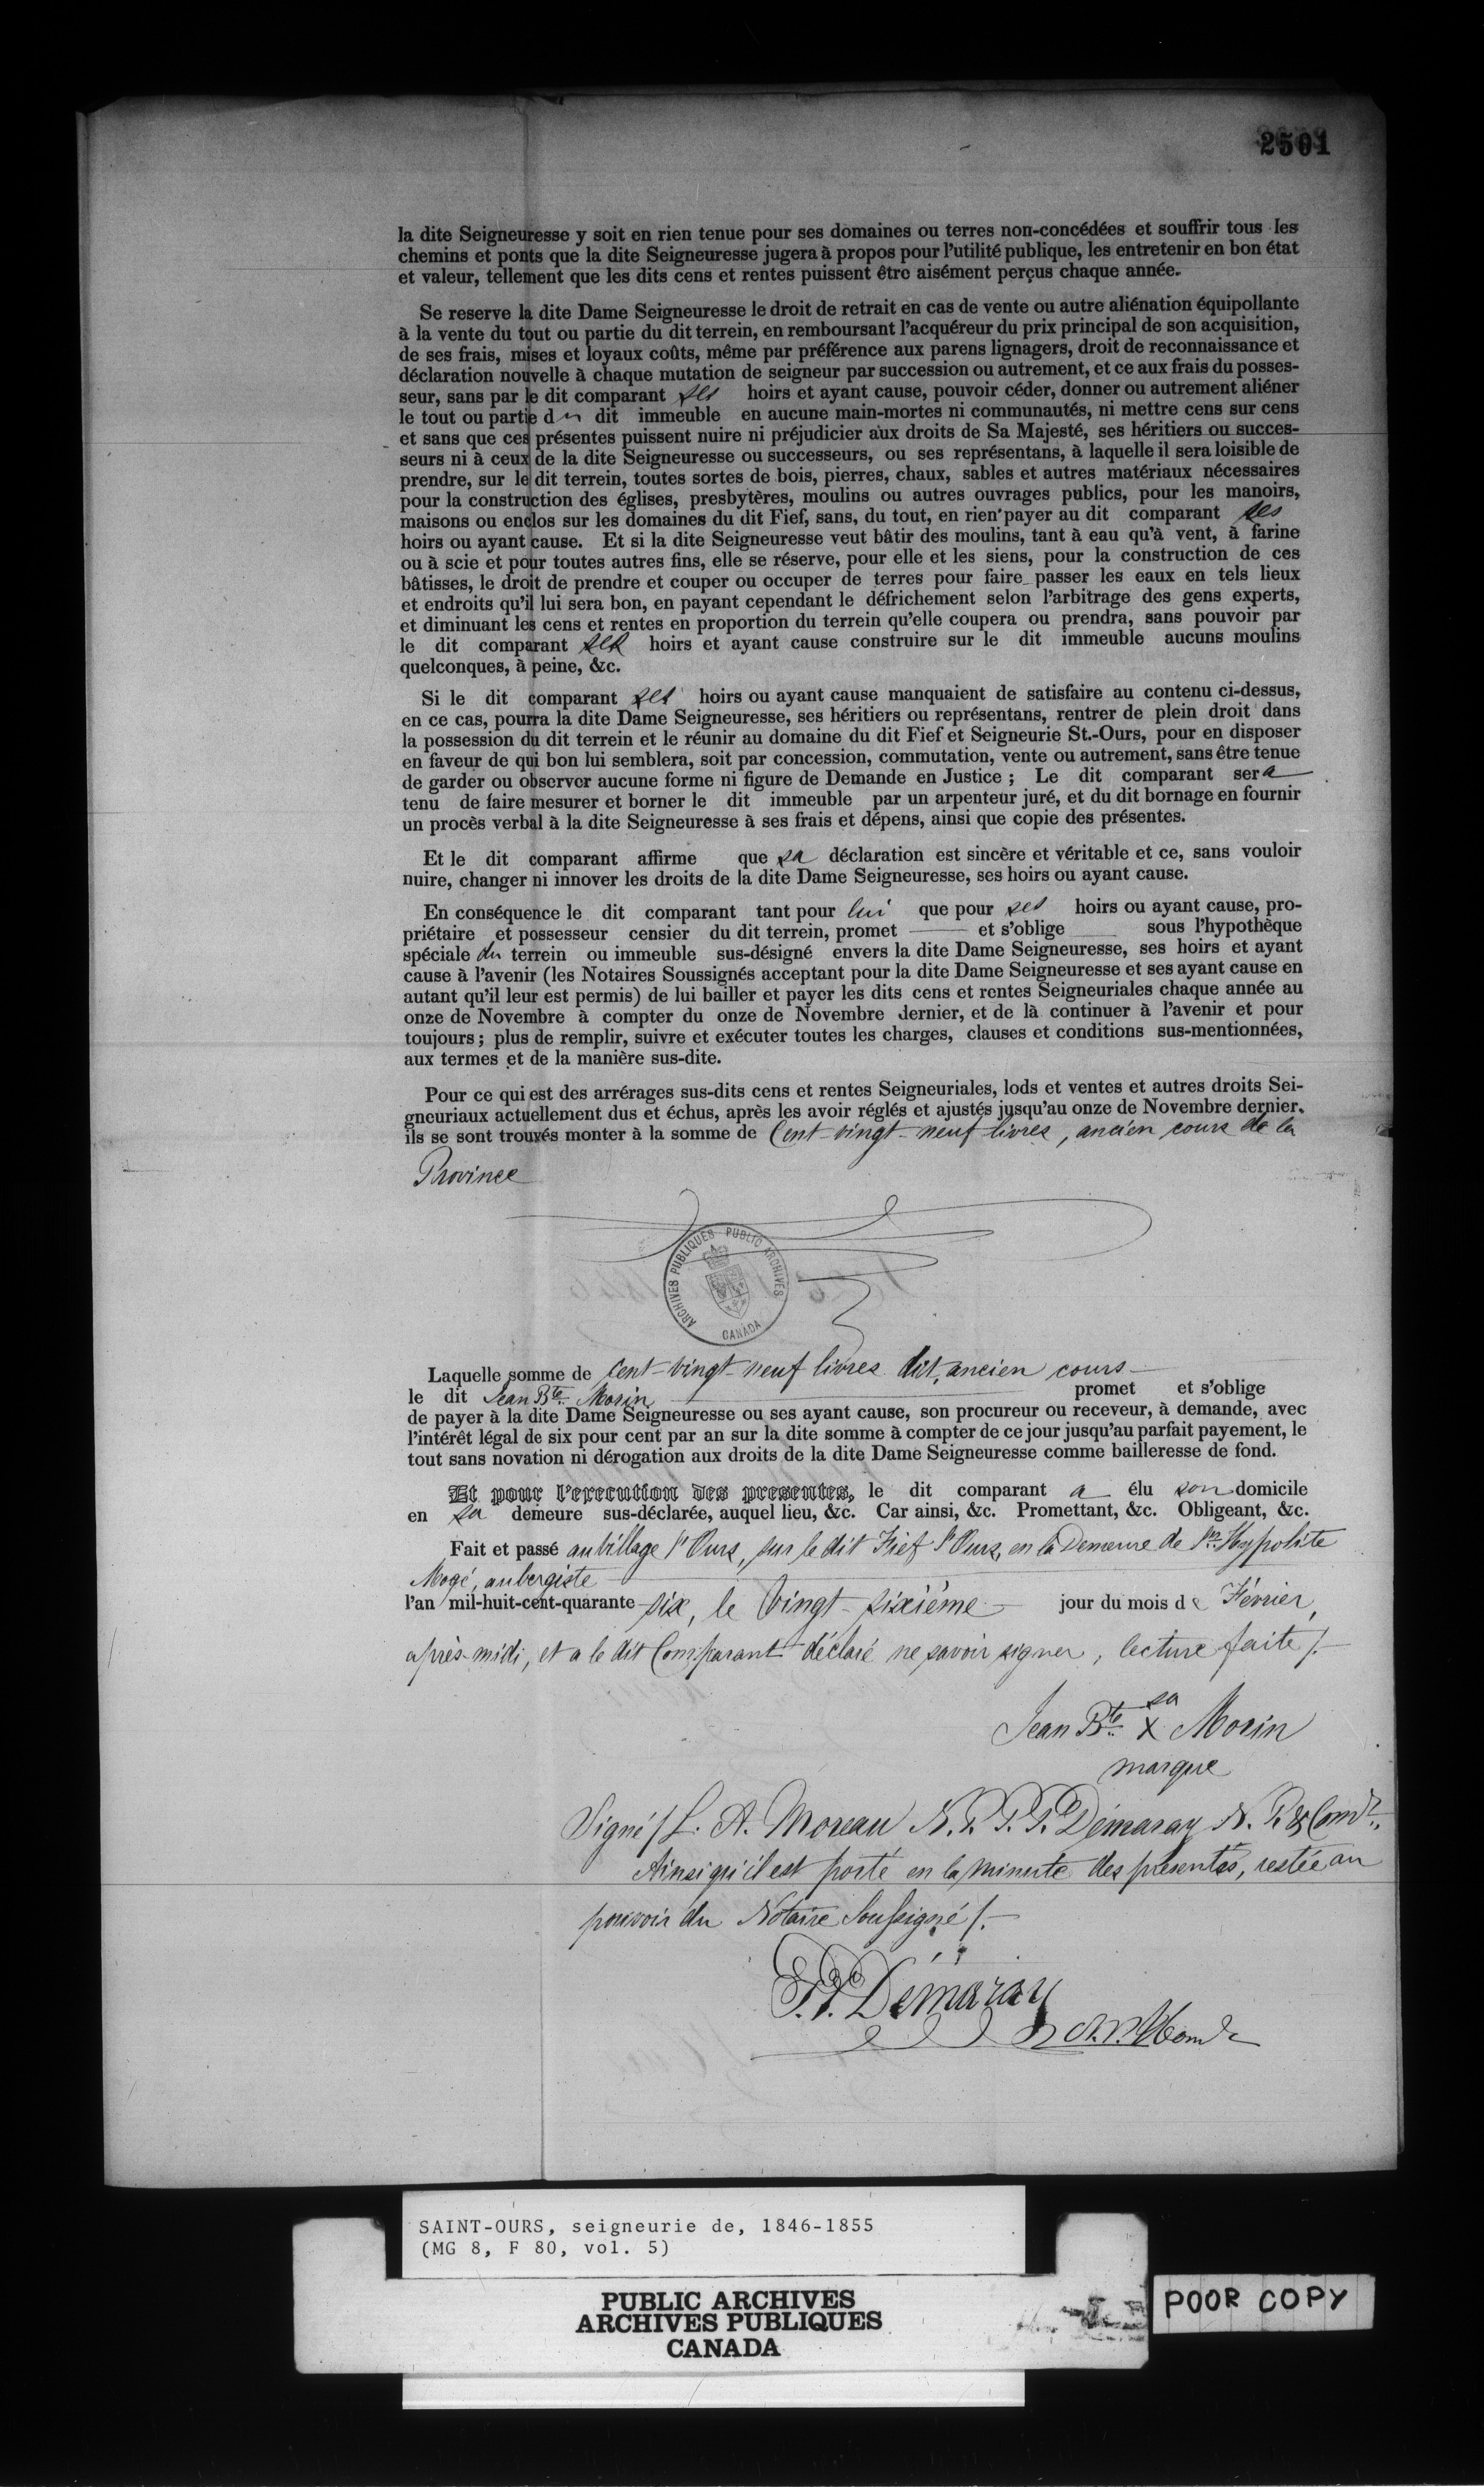 2501
la dite Seigneuresse y soit en rien tenue pour ses domaines ou terres non-concédées et souffrir tous les
chemins et ponts que la dite Seigneuresse jugera à propos pour l'utilité publique, les entretenir en bon état
et valeur, tellement que les dits cens et rentes puissent être aisément perçus chaque année.
Se reserve la dite Dame Seigneuresse le droit de retrait en cas de vente ou autre aliénation équipollante
à la vente du tout ou partie du dit terrein, en remboursant l'acquéreur du prix principal de son acquisition,
de ses frais, mises et loyaux coûts, même par préférence aux parens lignagers, droit de reconnaissance et
déclaration nouvelle à chaque mutation de seigneur par succession ou autrement, et ce aux frais du posses-
seur, sans par le dit comparant ses hoirs et ayant cause, pouvoir céder, donner ou autrement aliéner
le tout ou partie du dit immeuble en aucune main-mortes ni communautés, ni mettre cens sur cens
et sans que ces présentes puissent nuire ni préjudicier aux droits de Sa Majesté, ses héritiers ou succes-
seurs ni à ceux de la dite Seigneuresse ou successeurs, ou ses représentans, à laquelle il sera loisible de
prendre, sur le dit terrein, toutes sortes de bois, pierres, chaux, sables et autres matériaux nécessaires
pour la construction des églises, presbytères, moulins ou autres ouvrages publics, pour les manoirs,
maisons ou enclos sur les domaines du dit Fief, sans, du tout, en rien payer au dit comparant ses
hoirs ou ayant cause. Et si la dite Seigneuresse veut bâtir des moulins, tant à eau qu'à vent, à farine
ou à scie et pour toutes autres fins, elle se réserve, pour elle et les siens, pour la construction de ces
bâtisses, le droit de prendre et couper ou occuper de terres pour faire passer les eaux en tels lieux
et endroits qu'il lui sera bon, en payant cependant le défrichement selon l'arbitrage des gens experts,
et diminuant les cens et rentes en proportion du terrein qu'elle coupera ou prendra, sans pouvoir par
le dit comparant ses hoirs et ayant cause construire sur le dit immeuble aucuns moulins
quelconques, à peine, &c.
Si le dit comparant ses hoirs ou ayant cause manquaient de satisfaire au contenu ci-dessus,
en ce cas, pourra la dite Dame Seigneuresse, ses héritiers ou représentans, rentrer de plein droit dans
la possession du dit terrein et le réunir au domaine du dit Fief et Seigneurie St.-Ours, pour en disposer
en faveur de qui bon lui semblera, soit par concession, commutation, vente ou autrement, sans être tenue
de garder ou observer aucune forme ni figure de Demande en Justice ; Le dit comparant sera
tenu de faire mesurer et borner le dit immeuble par un arpenteur juré, et du dit bornage en fournir
un procès verbal à la dite Seigneuresse à ses frais et dépens, ainsi que copie des présentes.
Et le dit comparant affirme que sa déclaration est sincère et véritable et ce, sans vouloir
nuire, changer ni innover les droits de la dite Dame Seigneuresse, ses hoirs ou ayant cause.
En conséquence le dit comparant tant pour lui que pour ses hoirs ou ayant cause, pro-
priétaire et possesseur censier du dit terrein, promet — et s'oblige — sous l'hypothèque
spéciale du terrein ou immeuble sus-désigné envers la dite Dame Seigneuresse, ses hoirs et ayant
cause à l'avenir (les Notaires Soussignés acceptant pour la dite Dame Seigneuresse et ses ayant cause en
autant qu'il leur est permis) de lui bailler et payer les dits cens et rentes Seigneuriales chaque année au
onze de Novembre à compter du onze de Novembre dernier, et de là continuer à l'avenir et pour
toujours ; plus de remplir, suivre et exécuter toutes les charges, clauses et conditions sus-mentionnées,
aux termes et de la manière sus-dite.
Pour ce qui est des arrérages sus-dits cens et rentes Seigneuriales, lods et ventes et autres droits Sei-
gneuriaux actuellement dus et échus, après les avoir réglés et ajustés jusqu'au onze de Novembre dernier,
ils se sont trouvés monter à la somme de Cent-vingt-neuf livres, ancien cours de la
Province
ARCHIVES PUBLIQUES PUBLIC ARCHIVES
CANADA
Laquelle somme de Cent-vingt-neuf livres dit, ancien cours —
le dit Jean Bte. Morin — promet et s'oblige
de payer à la dite Dame Seigneuresse ou ses ayant cause, son procureur ou receveur, à demande, avec
l'intérêt légal de six pour cent par an sur la dite somme à compter de ce jour jusqu'au parfait payement, le
tout sans novation ni dérogation aux droits de la dite Dame Seigneuresse comme bailleresse de fond.
Et pour l'execution des presentes, le dit comparant a élu son domicile
en sa demeure sus-déclarée, auquel lieu, &c. Car ainsi, &c. Promettant, &c. Obligeant, &c.
Fait et passé au Village St Ours, sur le dit Fief St Ours, en la Demeure de Sr. Hypolite
Mogé, aubergiste —
l'an mil-huit-cent-quarante-six, le Vingt-sixième — jour du mois de Février,
après-midi, et a le dit Comparant déclaré ne savoir signer, lecture faite /.—
sa
Jean Bte. X Morin
marque
Signé / L. A. Moreau N. P. P. P. Démaray N. P. & Comdt.
Ainsi qu'il est porté en la minute des présentes, restée au
pouvoir du Notaire Soussigné /.—
P. P. Démaray
SAINT-OURS, seigneurie de, 1846-1855
(MG 8, F 80, vol. 5)
PUBLIC ARCHIVES
ARCHIVES PUBLIQUES
CANADA
POOR COPY